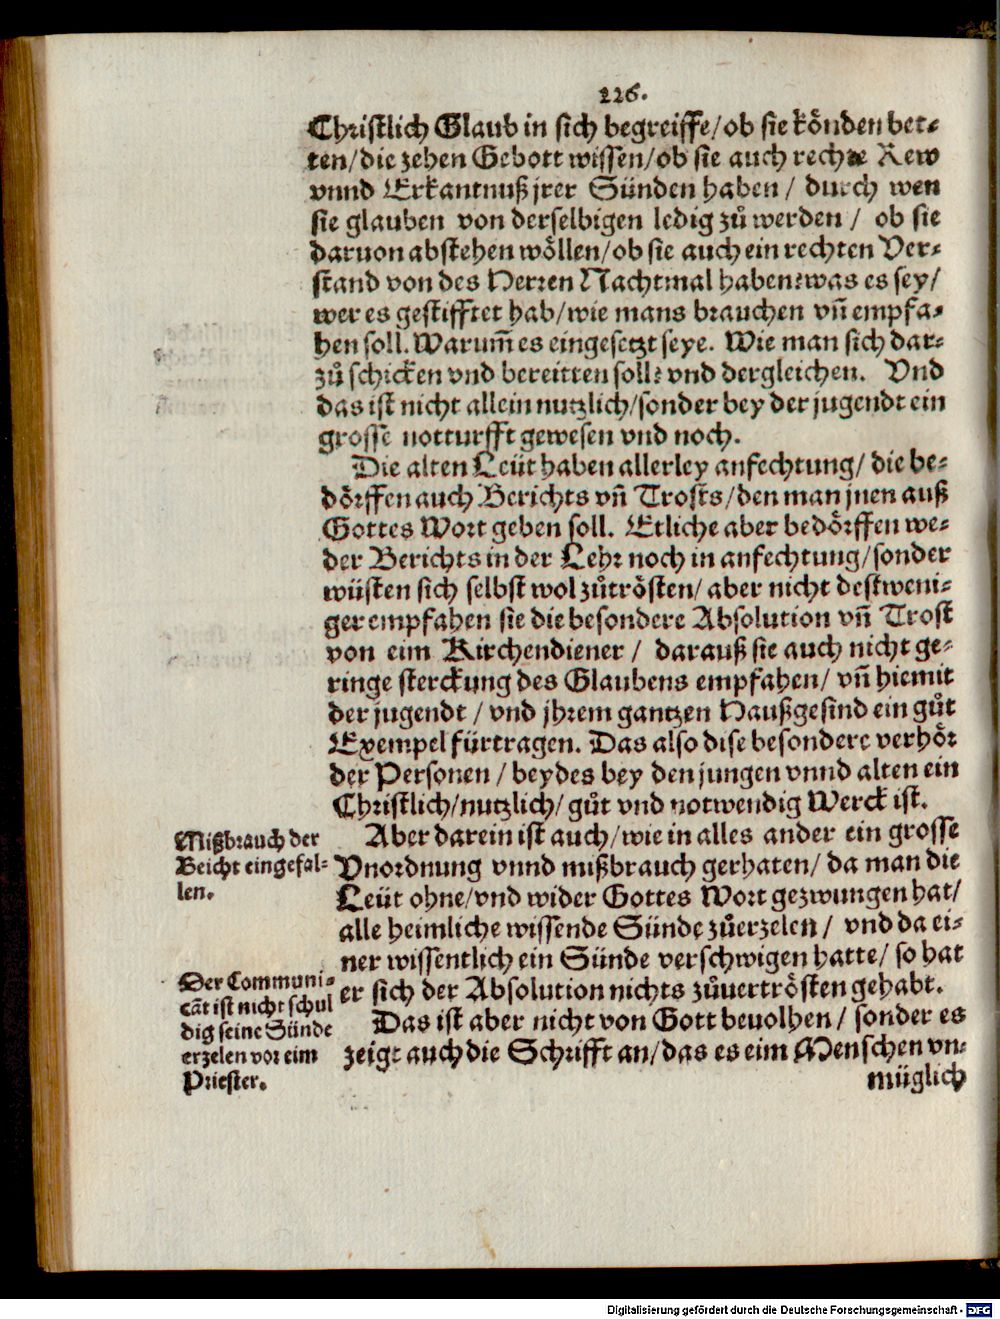 226.
Christlich Glaub in sich begreiffe/ob sie könden bet-
ten/die zehen Gebott wissen/ob sie auch rechte Rew
vnnd Erkantnuß jrer Sünden haben/ durch wen
sie glauben von derselbigen ledig zů werden/ ob sie
daruon abstehen wöllen/ob sie auch ein rechten Ver-
stand von des Herren Nachtmal haben: was es sey/
wer es gestifftet hab/wie mans brauchen vñ empfa-
hen soll. Warum̃ es eingesetzt seye. Wie man sich dar-
zů schicken vnd bereitten soll: vnd dergleichen. Vnd
das ist nicht allein nutzlich/sonder bey der jugendt ein
grosse notturfft gewesen vnd noch.
Die alten Leüt haben allerley anfechtung/ die be-
dörffen auch Berichts vñ Trosts/den man jnen auß
Gottes Wort geben soll. Etliche aber bedörffen we-
der Berichts in der Lehr noch in anfechtung/sonder
wüsten sich selbst wol zůtrösten/ aber nicht destweni-
ger empfahen sie die besondere Absolution vñ Trost
von eim Kirchendiener/ darauß sie auch nicht ge-
ringe sterckung des Glaubens empfahen/ vñ hiemit
der jugendt/ vnd jhrem gantzen Haußgesind ein gůt
Exempel fürtragen. Das also dise besondere verhör
der Personen/ beydes bey den jungen vnnd alten ein
Christlich/nutzlich/ gůt vnd notwendig Werck ist.
Mißbrauch der
Beicht eingefal-
len.
Aber darein ist auch/wie in alles ander ein grosse
Vnordnung vnnd mißbrauch gerhaten/ da man die
Leüt ohne/vnd wider Gottes Wort gezwungen hat/
alle heimliche wissende Sünde zůerzelen/ vnd da ei-
ner wissentlich ein Sünde verschwigen hatte/ so hat
er sich der Absolution nichts zůuertrösten gehabt.
Der Communi-
cāt ist nicht schul
dig seine Sünde
erzelen vor eim
Priester.
Das ist aber nicht von Gott beuolhen/ sonder es
zeigt auch die Schrifft an/das es eim Menschen vn-
müglich
Digitalisierung gefördert durch die Deutsche Forschungsgemeinschaft - DFG